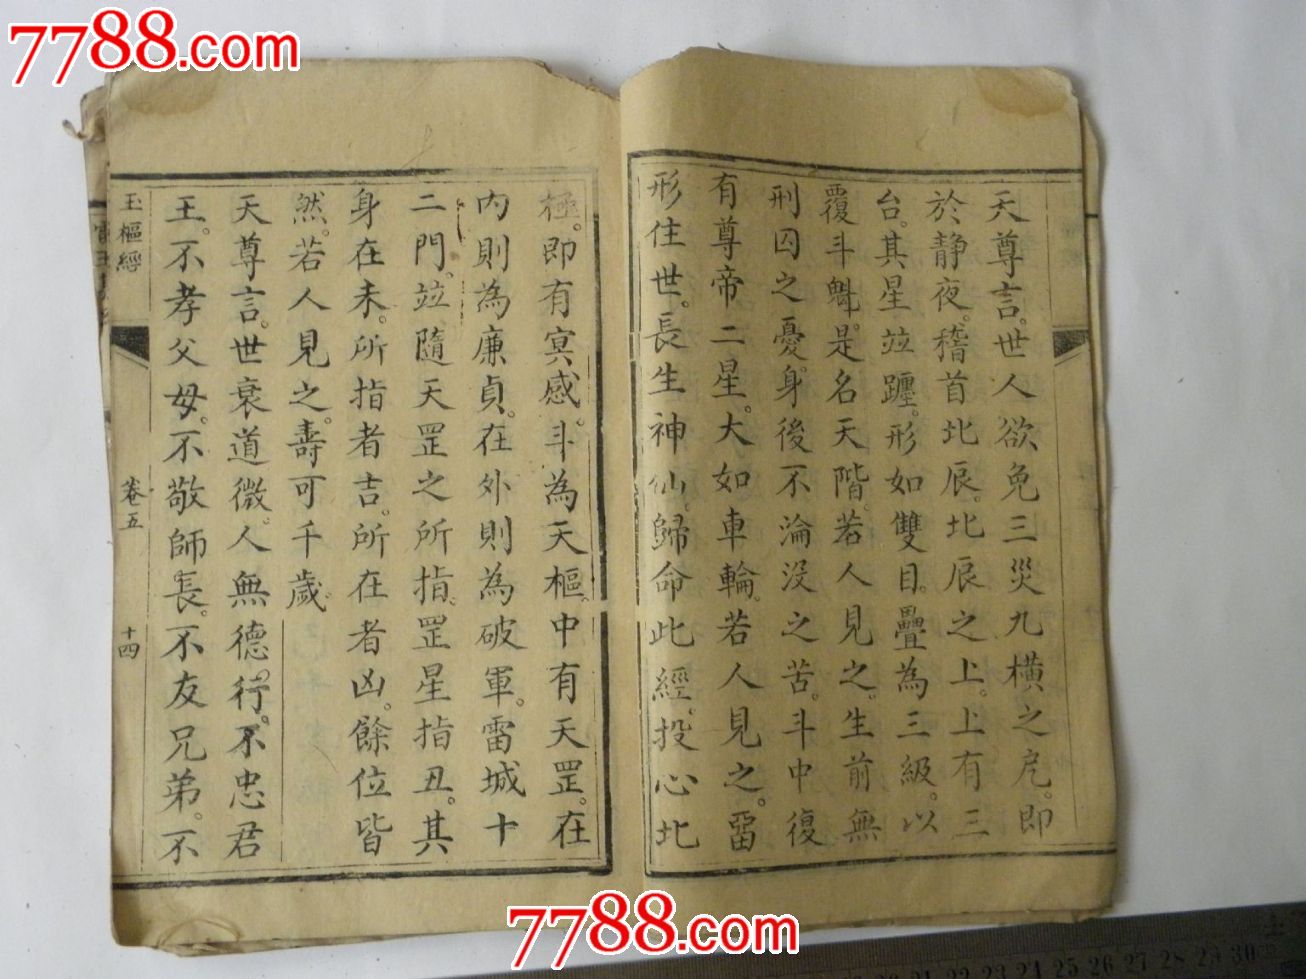 7788.com
天尊言。世人欲免三災九橫之厄。即
於靜夜。稽首北辰。北辰之上。上有三
台。其星竝躔。形如雙目。疊為三級。以
覆斗魁。是名天階。若人見之。生前無
刑囚之憂。身後不淪沒之苦。斗中復
有尊帝二星。大如車輪。若人見之。畱
形住世。長生神仙。歸命此經。投心北
極。即有冥感。斗為天樞。中有天罡。在
內則為廉貞。在外則為破軍。雷城十
二門。竝隨天罡之所指。罡星指丑。其
身在未。所指者吉。所在者凶。餘位皆
然。若人見之。壽可千歲。
天尊言。世衰道微。人無德行。不忠君
王。不孝父母。不敬師長。不友兄弟。不
玉樞經
卷五
十四
7788.com
24 25 26 27 28 29 30